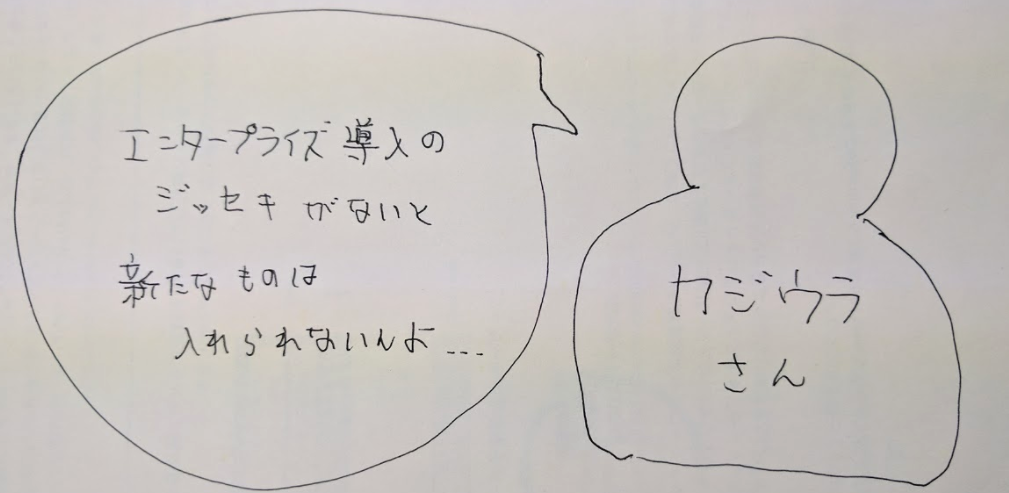 エンタープライズ導入の
ジッセキがないと
新たなものは
入れられないんよ...
カジウラ
さん